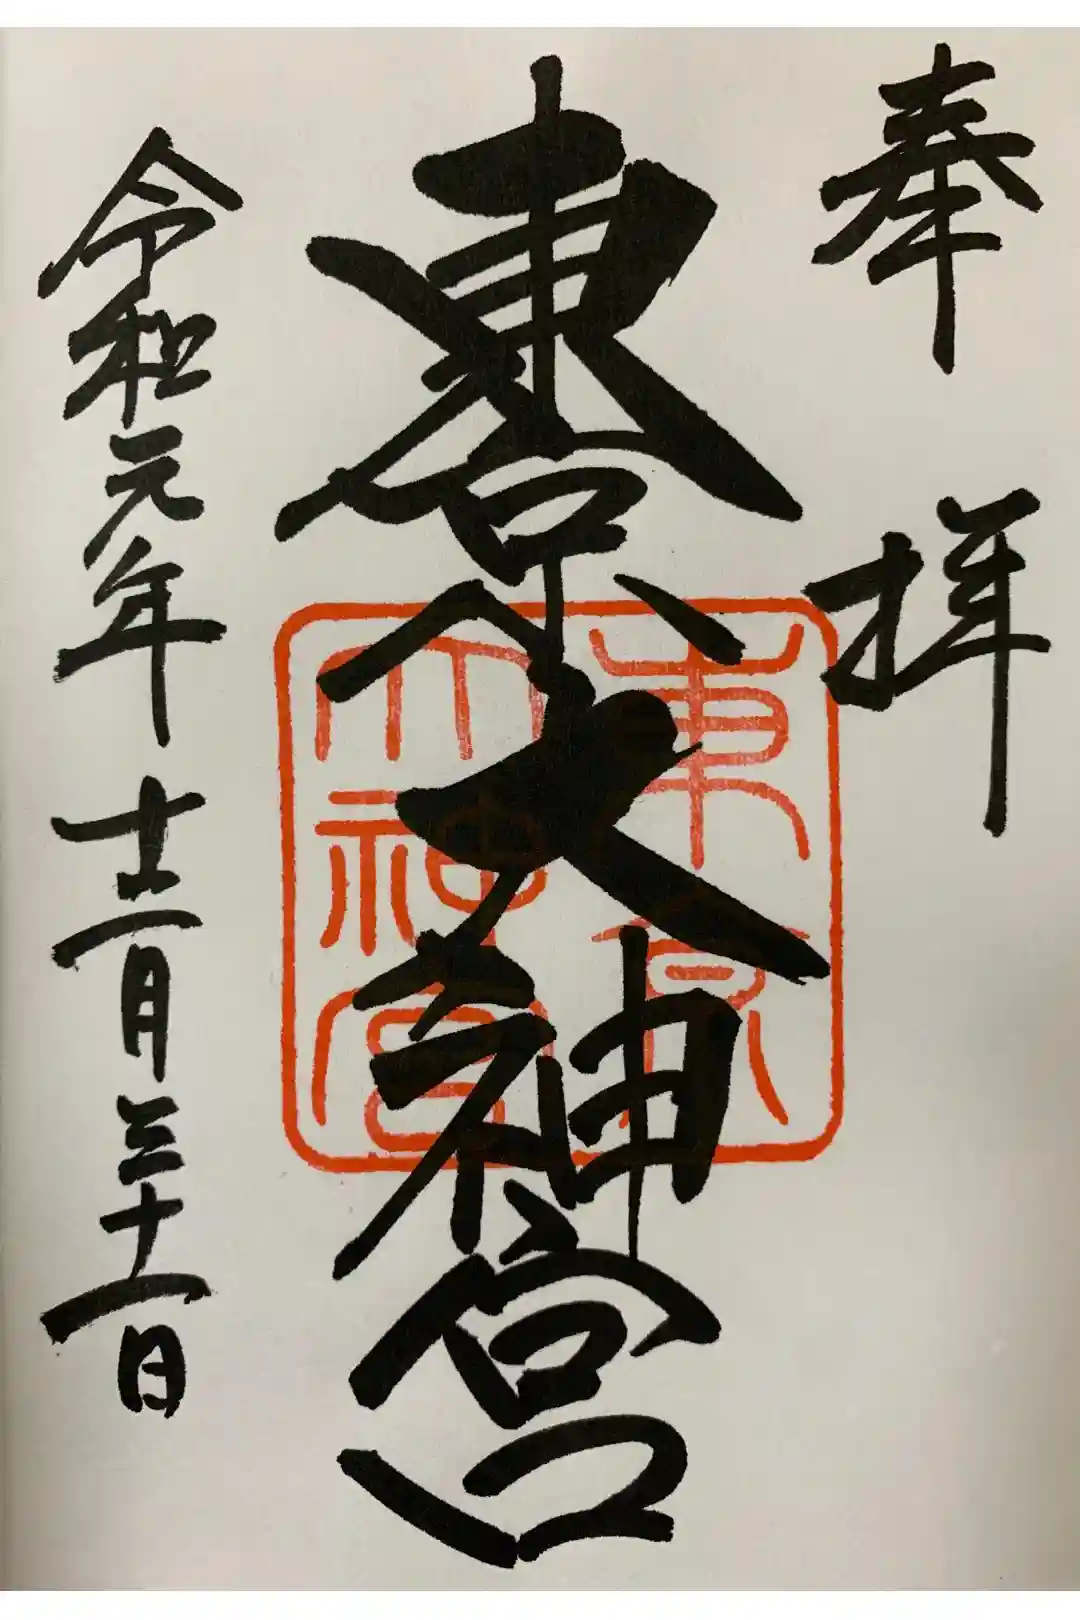 奉拝
東京大神宮
東京
大神宮
令和元年十二月三十一日